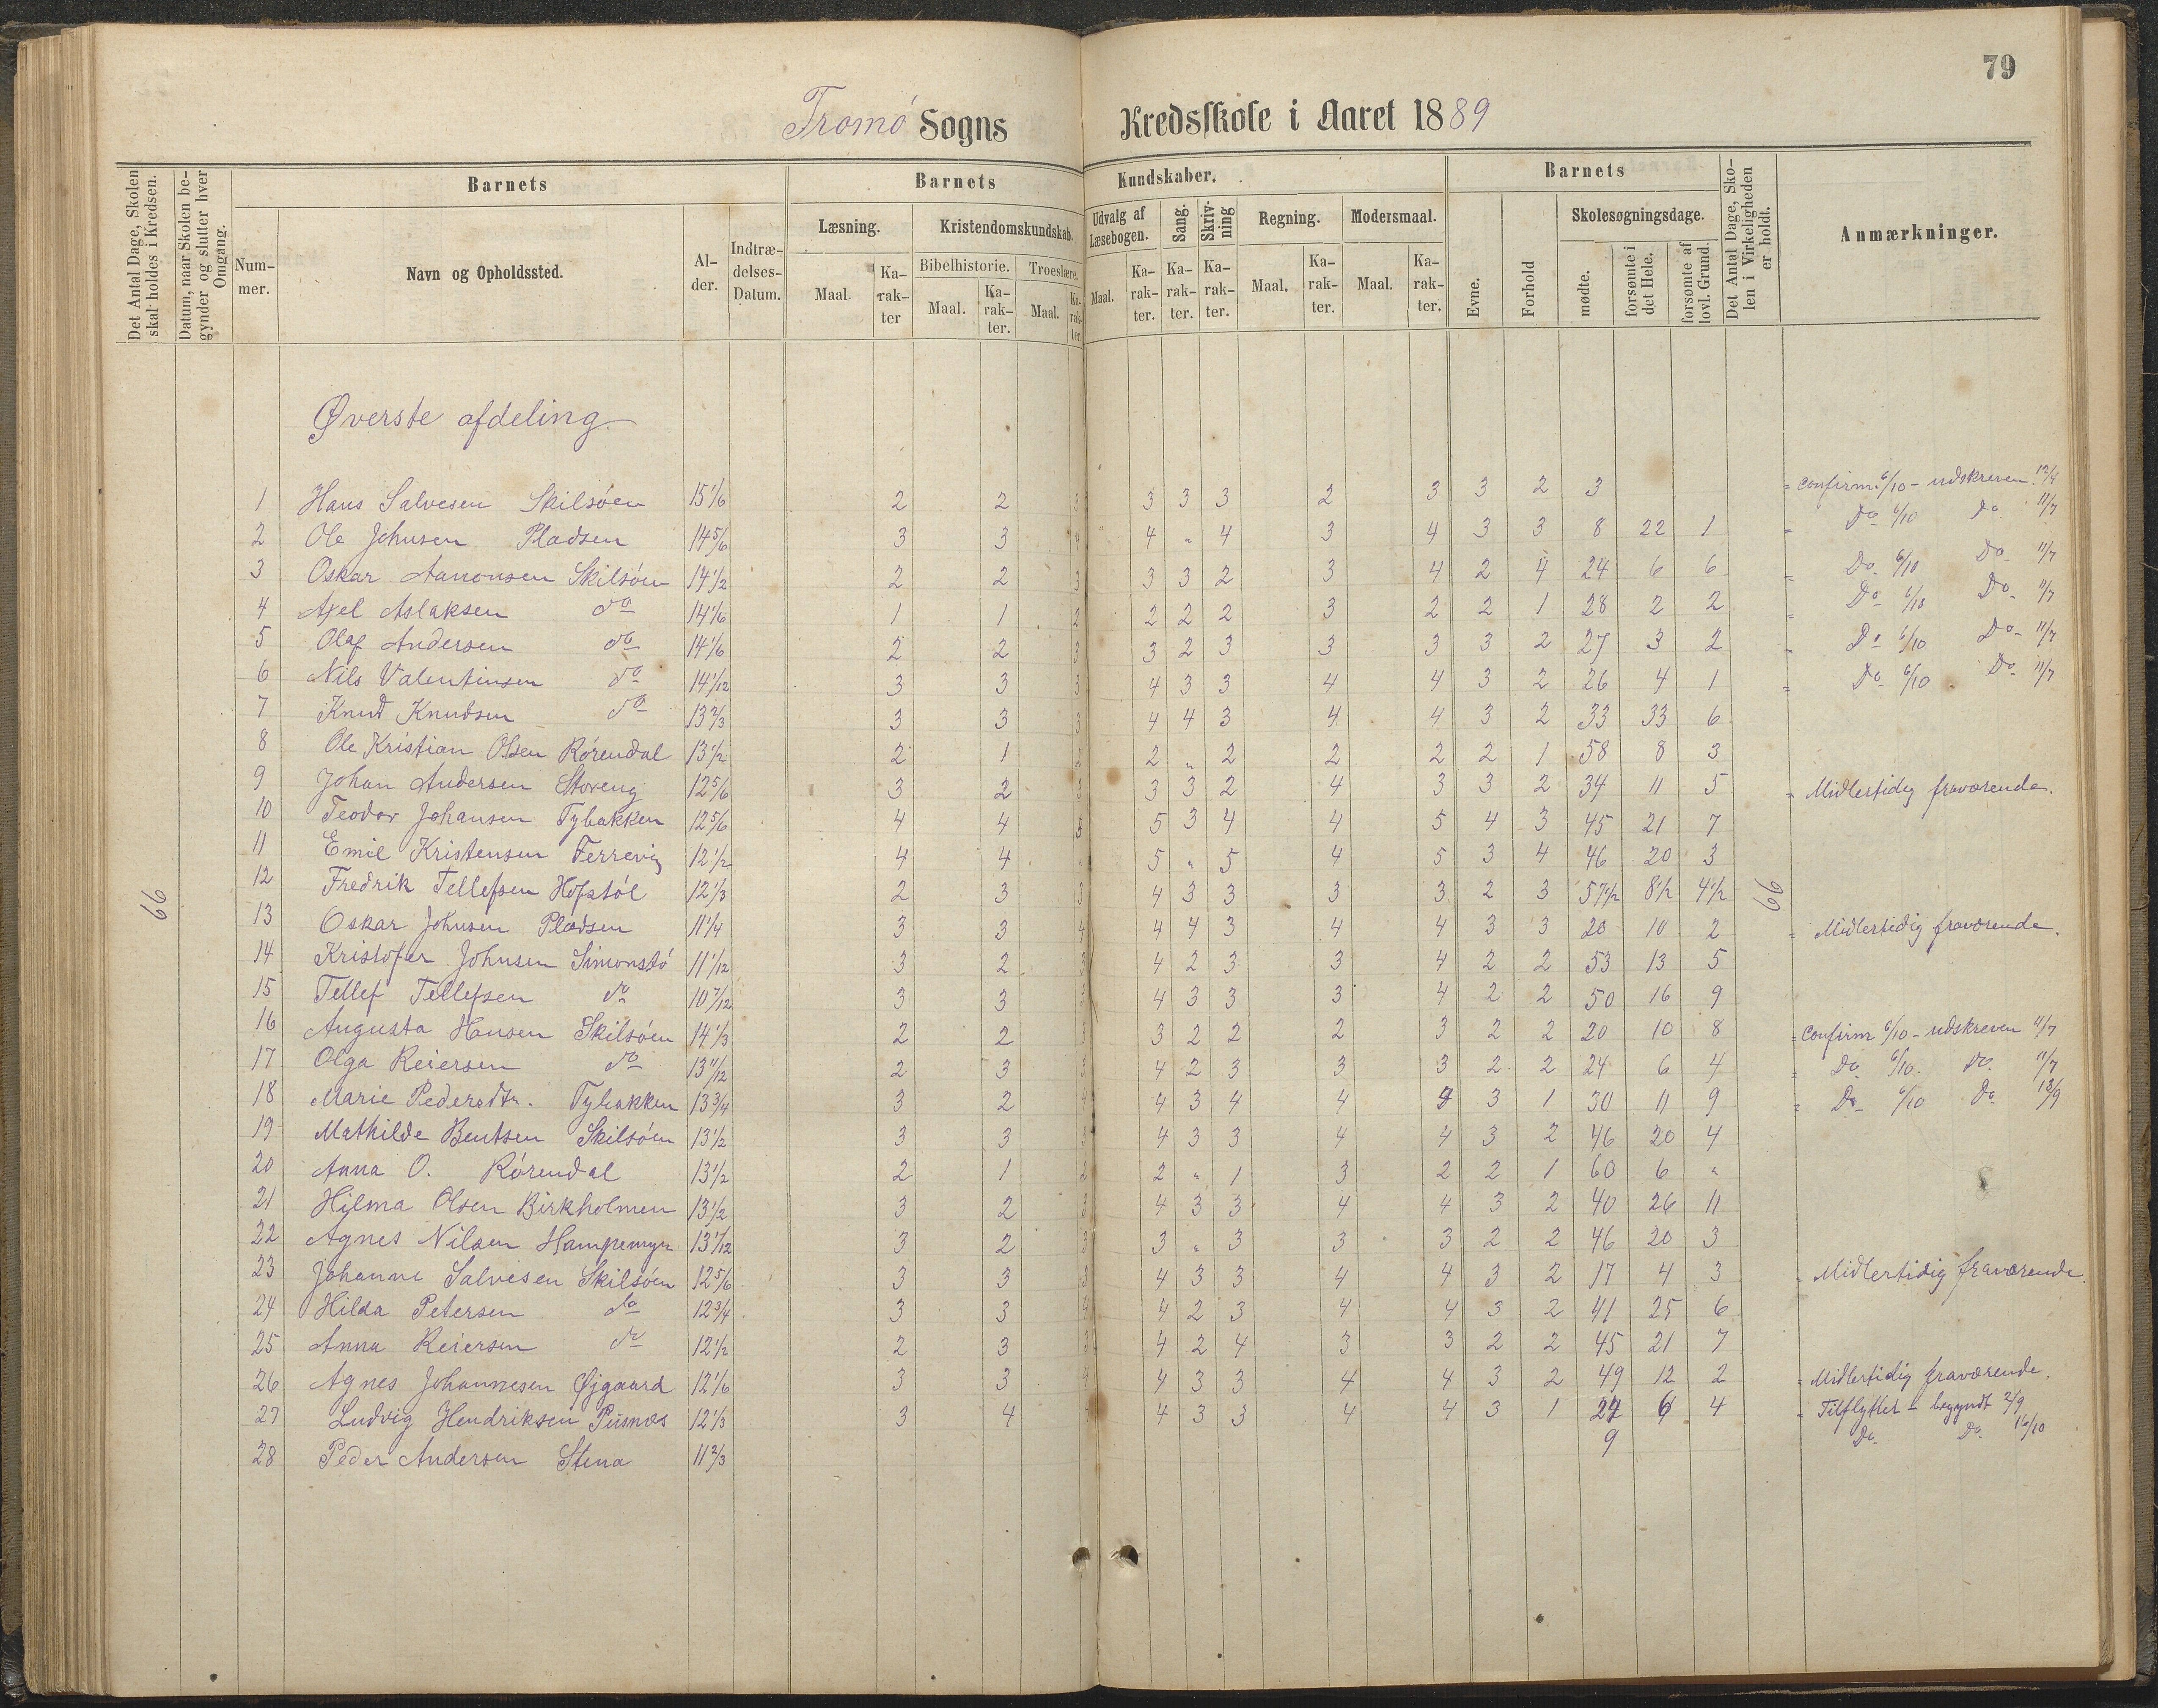 79
Tromö Sogns Kredsskole i Aaret 1889
Det Antal Dage, Skolen skal holdes i Kredsen.
Datum, naar Skolen begynder og slutter hver Omgang.
Barnets
Num-mer.
Navn og Opholdssted.
Al-der.
Indtræ-delses-Datum.
Barnets Kundskaber.
Læsning.
Maal. Ka-rak-ter
Kristendomskundskab.
Bibelhistorie. Troeslære.
Maal. Ka-rak-ter. Maal. Ka-rak-ter.
Udvalg af Læsebogen.
Maal. Ka-rak-ter.
Sang. Ka-rak-ter.
Skriv-ning Ka-rak-ter.
Regning.
Maal. Ka-rak-ter.
Modersmaal.
Maal. Ka-rak-ter.
Barnets
Evne.
Forhold
Skolesøgningsdage.
mødte.
forsømte i det Hele.
forsømte af lovl. Grund.
Det Antal Dage, Sko-len i Virkeligheden er holdt.
Anmærkninger.
Øverste afdeling.
66
66
1 Hans Salvesen Skilsöen 15 1/6 2 2 3 3 3 3 2 3 3 2 3 = Confirm. 6/10 - udskreven
2 Ole Johnsen Pladsen 14 5/6 3 3 4 4 " 4 3 4 3 3 8 22 1 = Do 6/10 Do 11/7
3 Oskar Aanonsen Skilsöen 14 1/2 2 2 3 3 3 2 3 4 2 4 24 6 6 = Do 6/10 Do 11/7
4 Axel Aslaksen do 14 1/6 1 1 2 2 2 2 3 2 2 1 28 2 2 = Do 6/10 Do 11/7
5 Olaf Andersen do 14 1/6 2 2 3 3 2 3 3 3 3 2 27 3 2 = Do 6/10 Do 11/7
6 Nils Valentinsen do 14 1/12 3 3 3 4 3 3 4 4 3 2 26 4 1 = Do 6/10 Do 11/7
7 Knud Knudsen do 13 2/3 3 3 3 4 4 3 4 4 3 2 33 33 6
8 Ole Kristian Olsen Rörendal 13 1/2 2 1 2 2 " 2 2 2 2 1 58 8 3
9 Johan Andersen Storeng 12 5/6 3 2 3 3 3 2 4 3 3 2 34 11 5 = Midlertidig fraværende.
10 Teodor Johansen Tybakken 12 5/6 4 4 5 5 3 4 4 5 4 3 45 21 7
11 Emil Kristensen Ferrevig 12 1/2 4 4 5 " 5 4 5 3 4 46 20 3
12 Fredrik Tellefsen Hofstöl 12 1/3 2 3 3 4 3 3 3 3 2 3 57 1/2 8 1/2 4 1/2
13 Oskar Johnsen Pladsen 11 1/4 3 3 4 4 4 3 4 4 3 3 20 10 2 = Midlertidig fraværende.
14 Kristofer Johnsen Simonstö 11 1/12 3 2 3 4 2 3 3 4 2 2 53 13 5
15 Tellef Tellefsen do 10 7/12 3 3 3 4 3 3 3 4 2 2 50 16 9
16 Augusta Hansen Skilsöen 14 1/3 2 2 3 3 2 2 2 3 2 2 20 10 8 = Confirm 6/10 - udskreven 11/7
17 Olga Reiersen do 13 11/12 2 3 3 4 2 3 3 3 2 2 24 6 4 = Do 6/10. Do. 11/7
18 Marie Pedersdtr. Tybakken 13 3/4 3 2 4 4 3 4 4 4 3 1 30 11 9 = Do 6/10 Do 13/9
19 Mathilde Bentsen Skilsöen 13 1/2 3 3 3 4 3 3 4 4 3 2 46 20 4
20 Anna O. Rörendal 13 1/2 2 1 2 2 " 1 3 2 2 1 60 6 "
21 Hilma Olsen Birkholmen 13 1/2 3 2 3 4 3 3 4 4 3 2 40 26 11
22 Agnes Nilsen Hampemyr 13 1/12 3 2 3 3 " 3 3 3 2 2 46 20 3
23 Johanne Salvesen Skilsöen 12 5/6 3 3 3 4 3 3 4 4 3 2 17 4 3 = Midlertidig fraværende.
24 Hilda Petersen do 12 3/4 3 3 4 4 2 3 4 4 3 2 41 25 6
25 Anna Reiersen do 12 1/2 2 3 3 4 2 4 3 3 2 2 45 21 7
26 Agnes Johannesen Øjgaard 12 1/6 3 3 4 4 3 3 4 4 3 2 49 12 2 = Midlertidig fraværende.
27 Ludvig Hendriksen Pusnæs 12 1/3 3 4 4 4 3 3 4 4 3 1 6 4 = Tilflyttet - begyndt 2/9
28 Peder Andersen Stena 11 2/3 9 Do. Do. 16/10